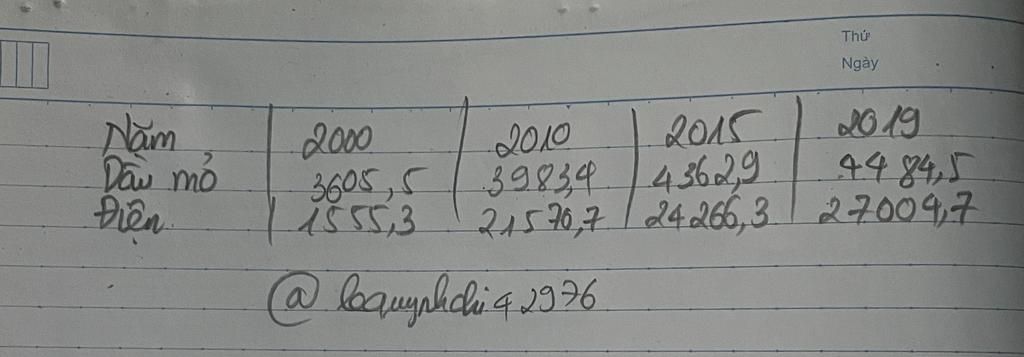 Thứ
Ngày
Năm 2000 2010 2015 2019
Dầu mỏ 3605,5 3983,4 4362,9 4484,5
Điện 1555,3 21570,7 24266,3 27004,7